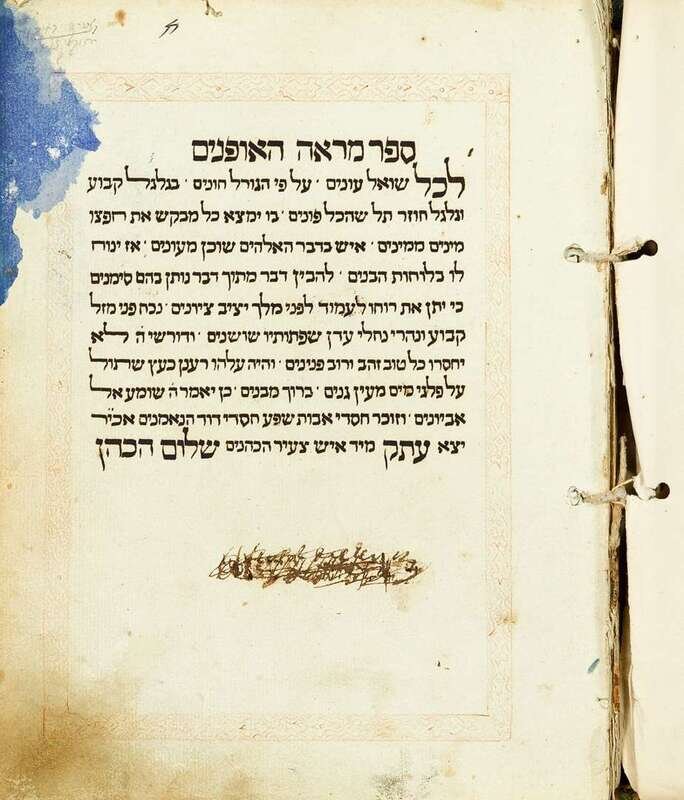 ספר מראה האופנים
לכל שואל עונים · על פי הגורל חונים · בגלגל קבוע
וגלגל חוזר תל שהכל פונים · בו ימצא כל מבקש את חפצו
מינים ממינים · איש בדבר האלהים שוכן מעונים · אז ינוח
לו בלוחות הבנים · להבין דבר מתוך דבר נותן בהם סימנים
כי יתן את רוחו לעמוד לפני מלך יציב ציונים · נכח פני מזל
קבוע ונהרי נחלי עדן שפתותיו שושנים · ודורשי ה׳ לא
יחסרו כל טוב זהב ורוב פנינים · והיה עלהו רענן כעץ שתול
על פלגי מים מעין גנים · ברוך מבנים · כן יאמר ה׳ שומע אל
אביונים · וזוכר חסדי אבות שפע חסדי דוד הנאמנים אכי״ר
יצא עתק מיד איש צעיר הכהנים שלום הכהן